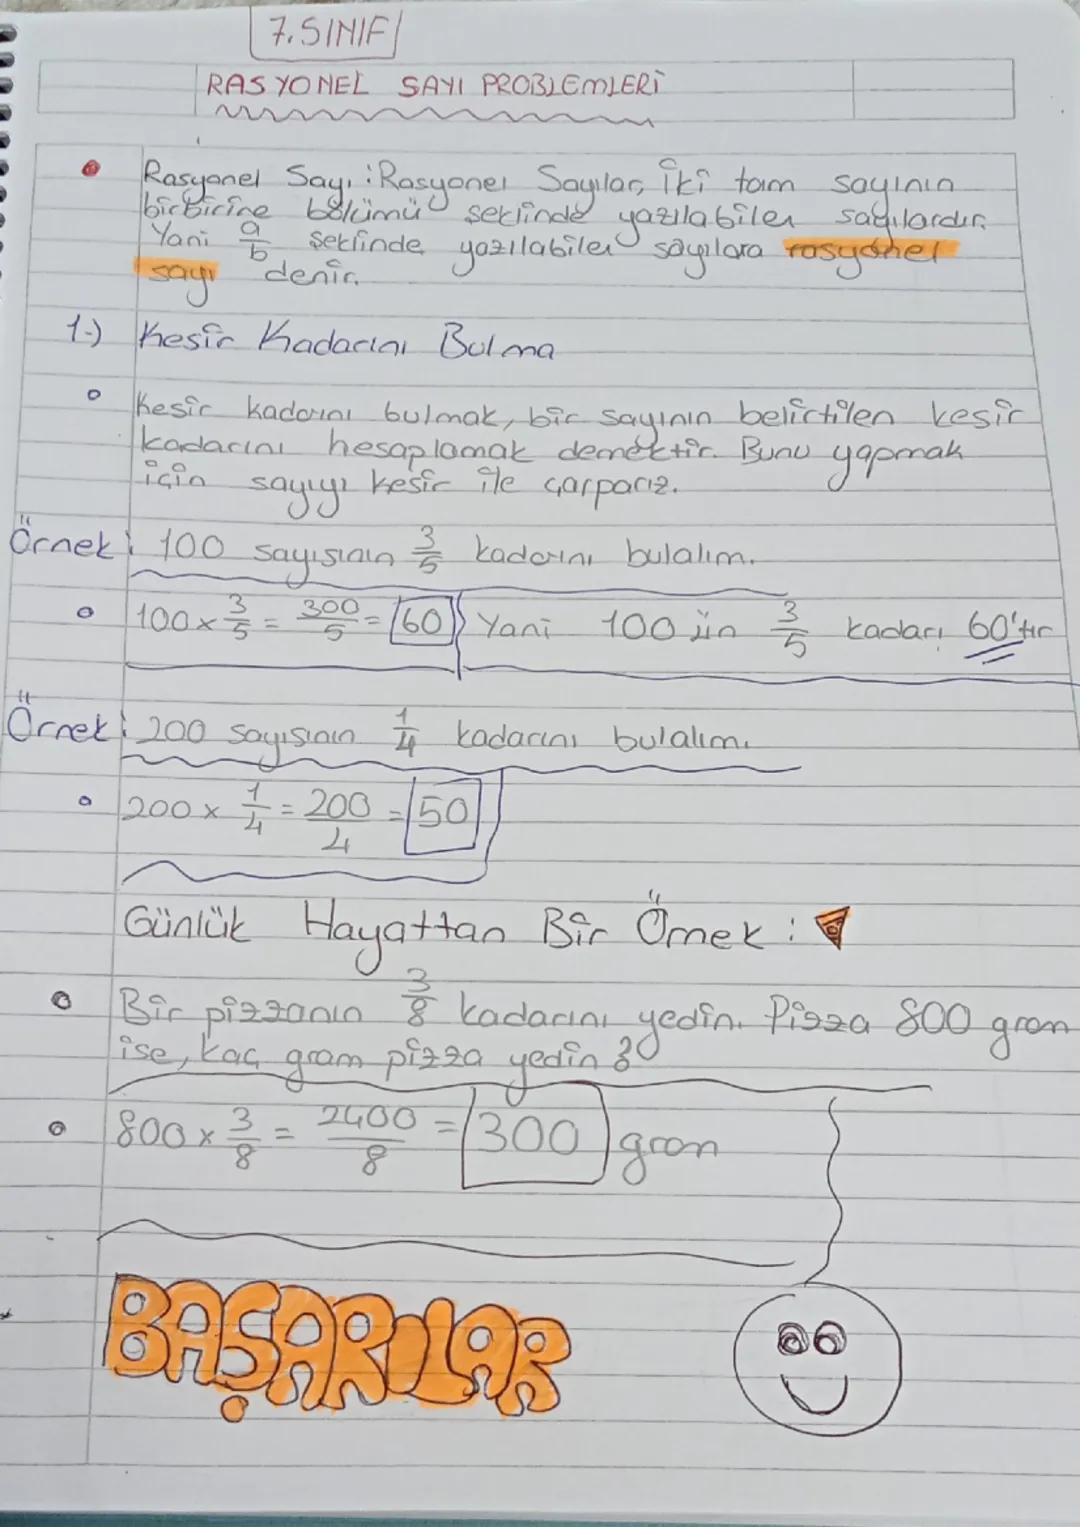 7. SINIF
RASYONEL SAYI PROBLEMLERİ
Rasyonel Sayı : Rasyonel Sayılar, iki tam sayının
birbirine bölümü şeklinde yazılabilen sayılardır.
Yani a/b şeklinde yazılabilen sayılara rasyonel
sayı denir.
1-) Kesir Kadarını Bulma
Kesir kadarını bulmak, bir sayının belirtilen kesir
kadarını hesaplamak demektir. Bunu yapmak
için sayıyı kesir ile çarparız.
Örnek: 100 sayısının 3/5 kadarını bulalım.
100 x 3/5 = 300/5 = 60 Yani 100 ün 3/5 kadarı 60'tır
Örnek: 200 sayısının 1/4 kadarını bulalım.
200 x 1/4 = 200/4 = 50
Günlük Hayattan Bir Örnek :
Bir pizzanın 3/8 kadarını yedin. Pizza 800 gram
ise, kaç gram pizza yedin ?
800 x 3/8 = 2400/8 = 300 gram
BAŞARILAR